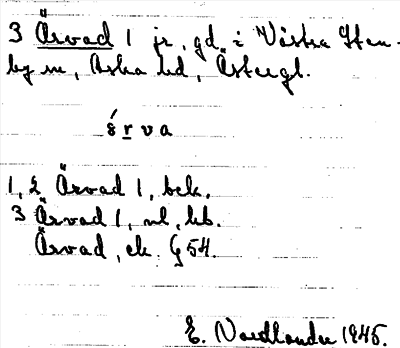 3 Ärvad 1 jr, gd. i Västra Sten-
by sn, Aska hd, Östergl.
ǽrva
1, 2 Ärvad 1, bek.
3 Ärvad 1, nl, kb.
Ärvad, ek. G 54.
E. Nordlander 1945.